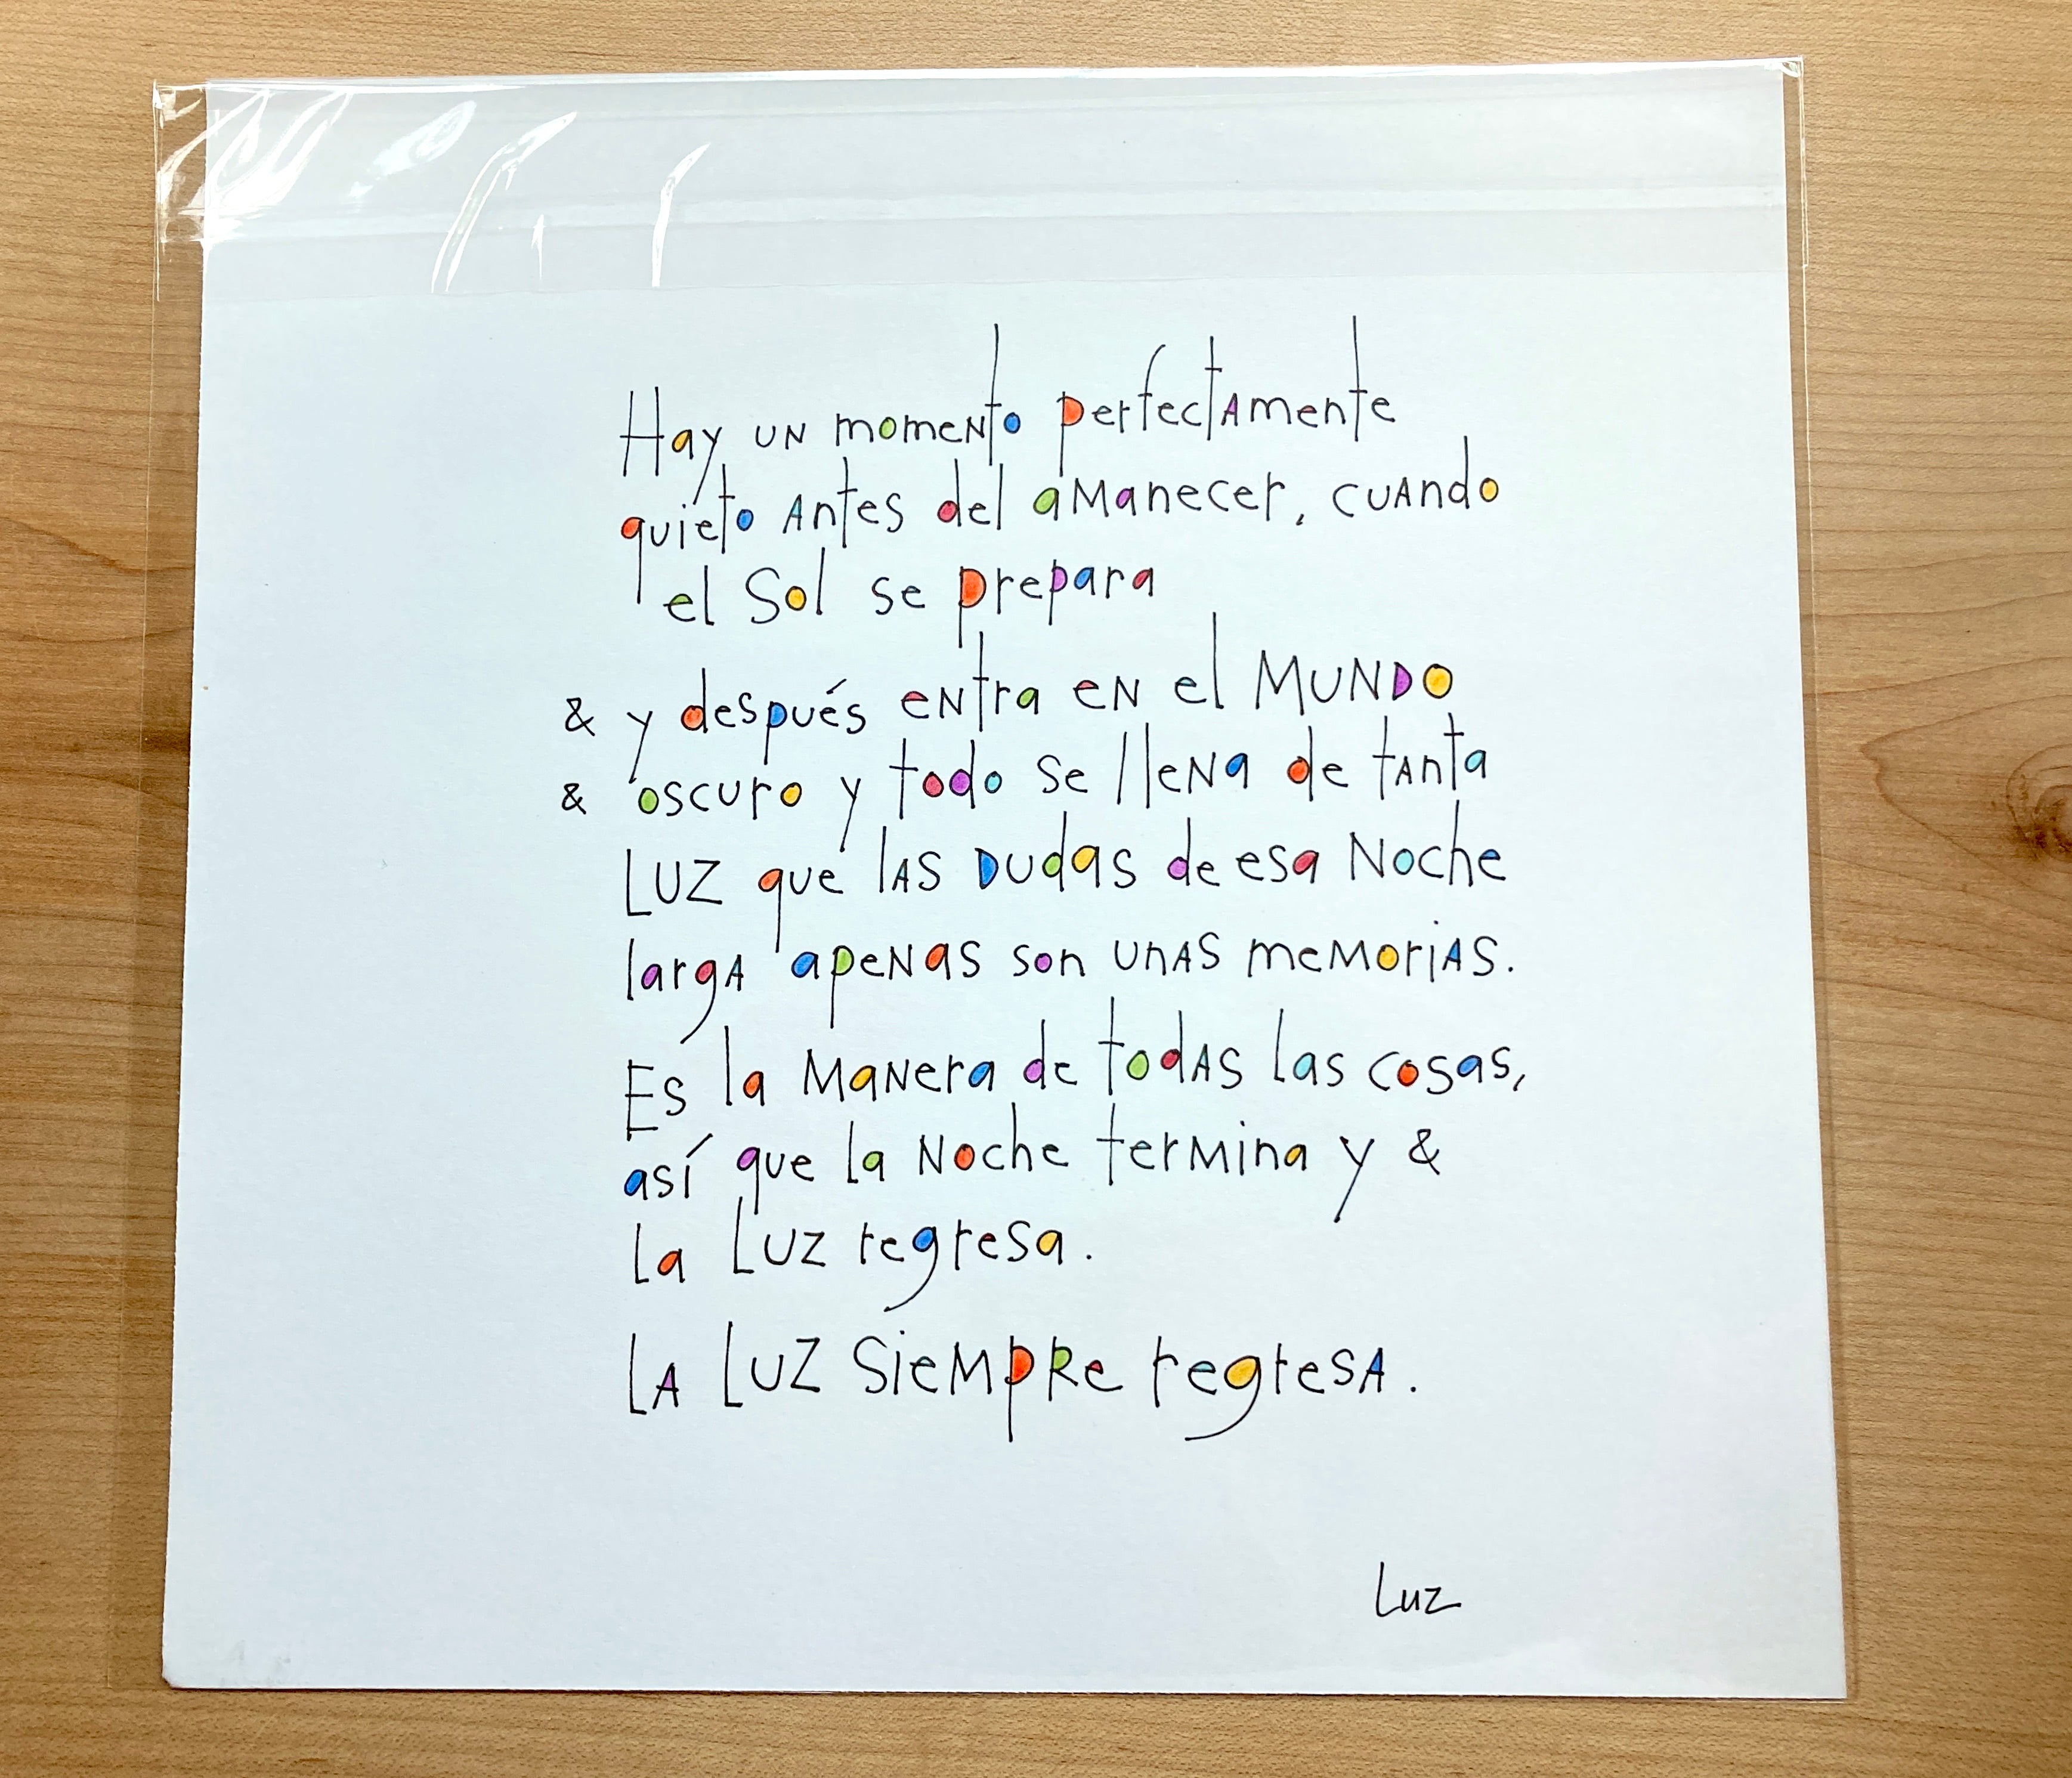 Hay UN momeNto perfectAmente
quieto Antes del aManecer, cuAndo
el Sol se prepara
& y después eNtra eN el MUNDO
& oscuro y todo se lleNa de tAnta
LUZ que lAS DudaS de esa Noche
largA apeNas son unAS meMoriAS.
ES la MaNera de todAS las cosas,
así que la Noche terMina y &
La Luz regresa.
LA LUZ SieMpRe regresA.
Luz